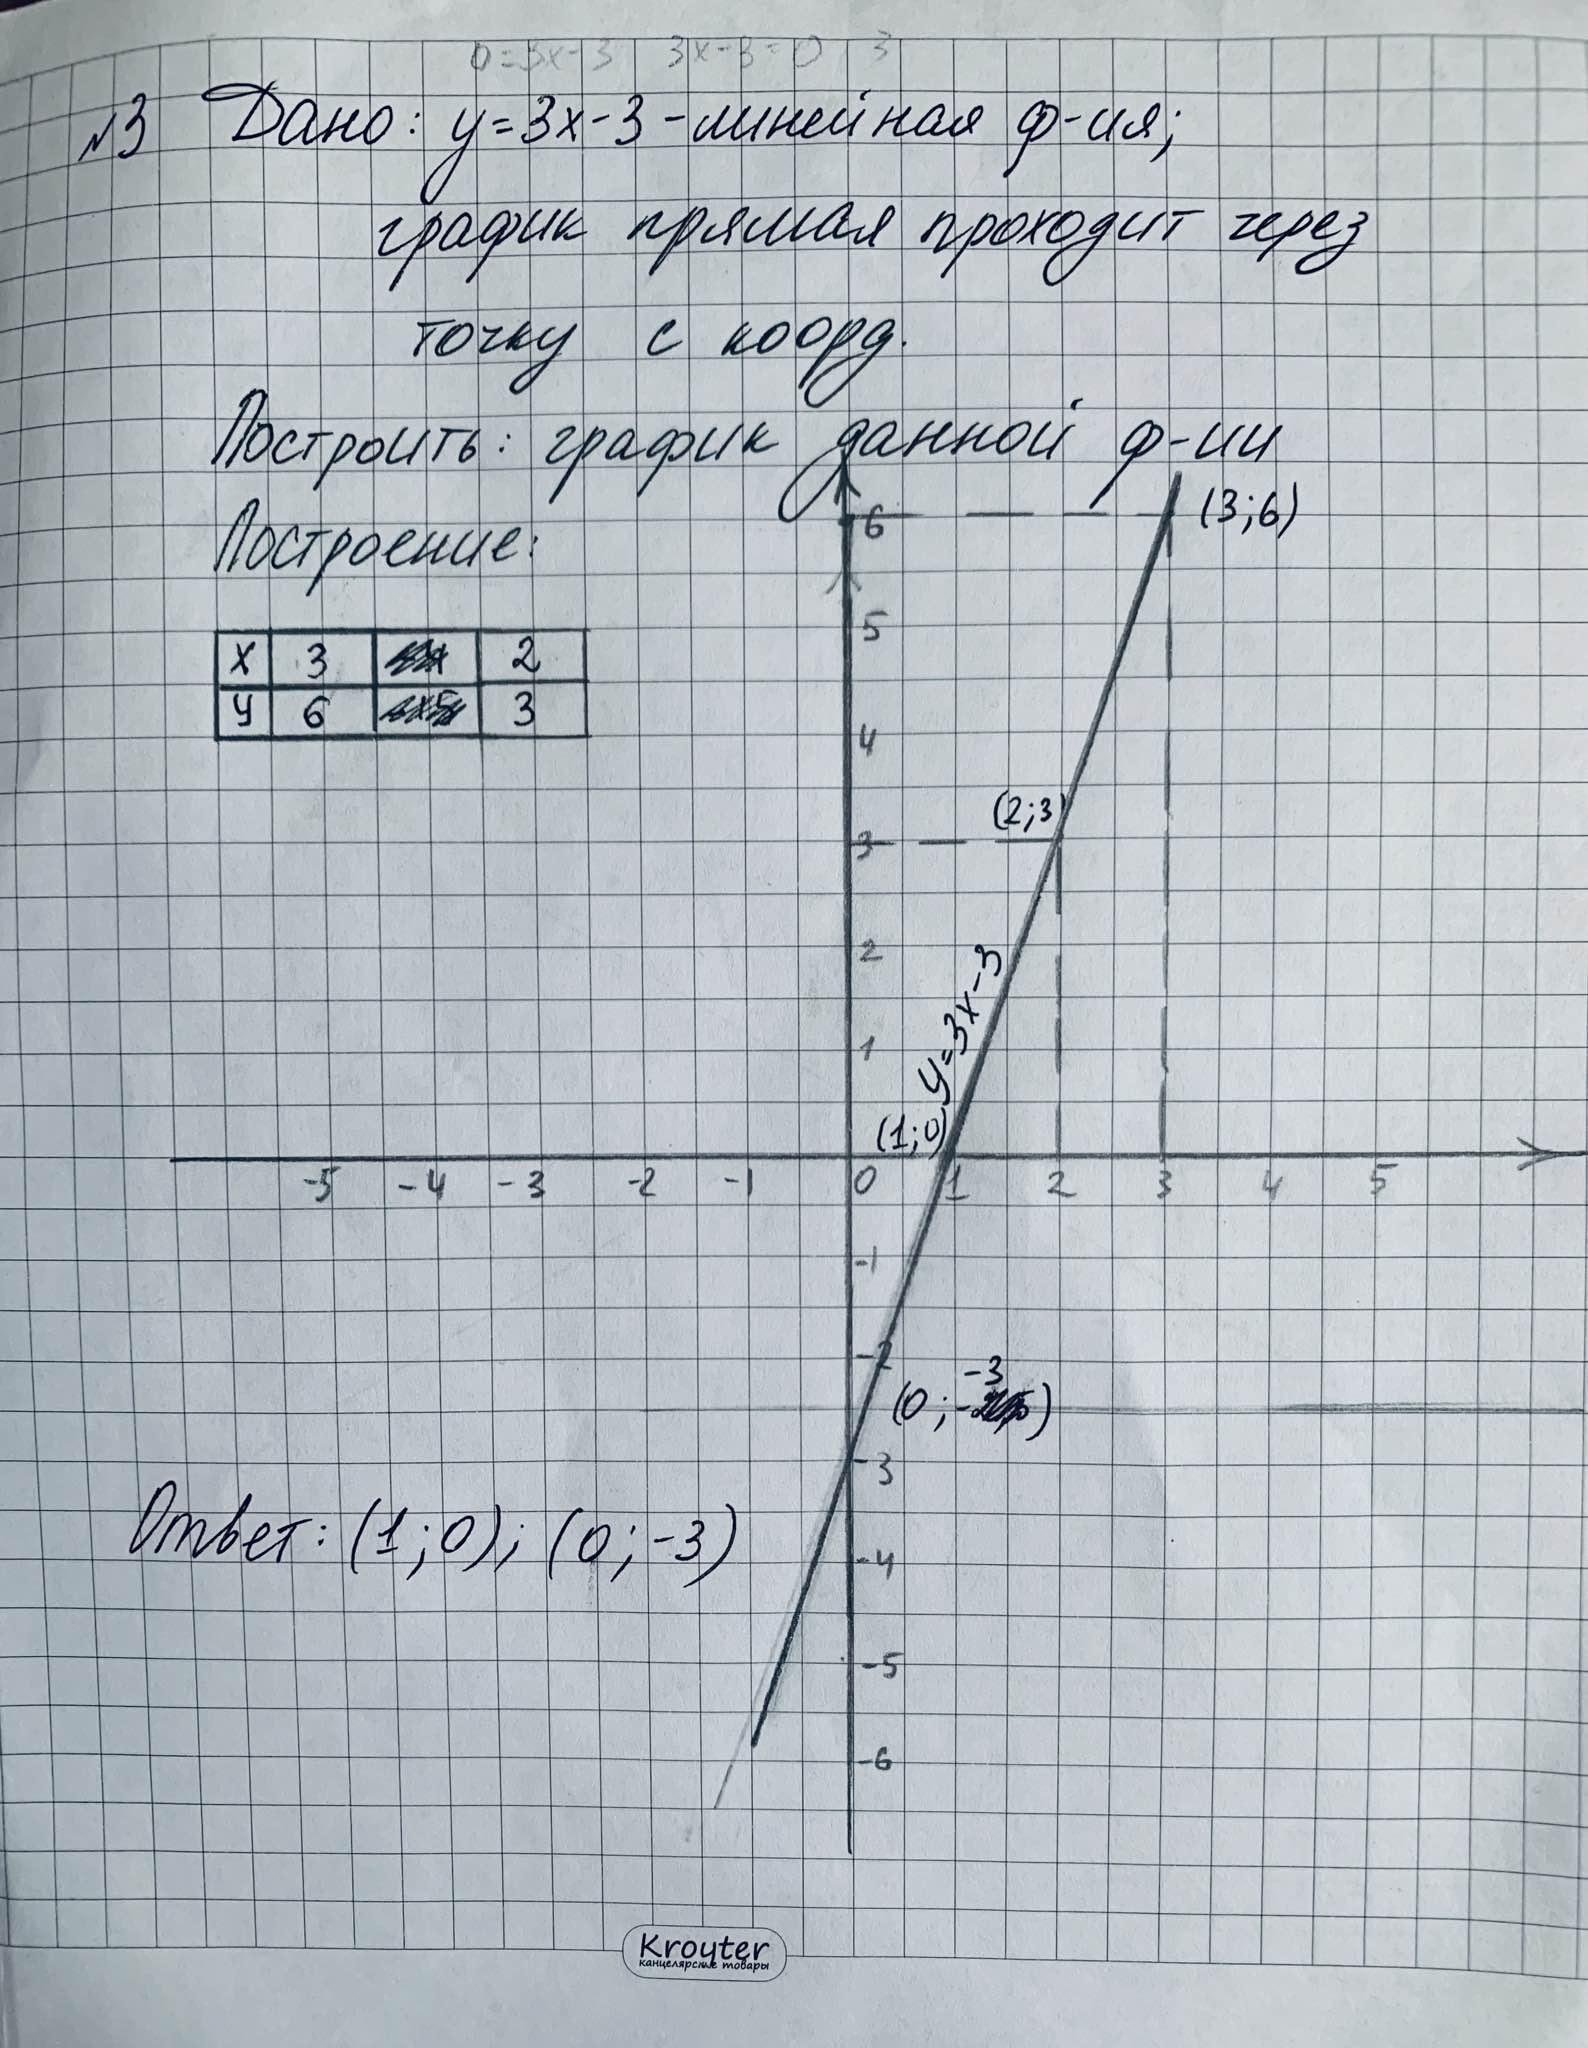 0=3x-3 3x-3=0 3
№3 Дано: y=3x-3 - линейная ф-ия;
график прямая проходит через
точку с коорд.
Построить: график данной ф-ии
Построение:
(3;6)
6
5
x 3 2
y 6 3
4
(2;3)
3
2
y=3x-3
1
(1;0)
-5 -4 -3 -2 -1 0 1 2 3 4 5
-1
-2
-3
(0; )
-3
Ответ: (1;0); (0;-3)
-4
-5
-6
Kroyter
канцелярские товары